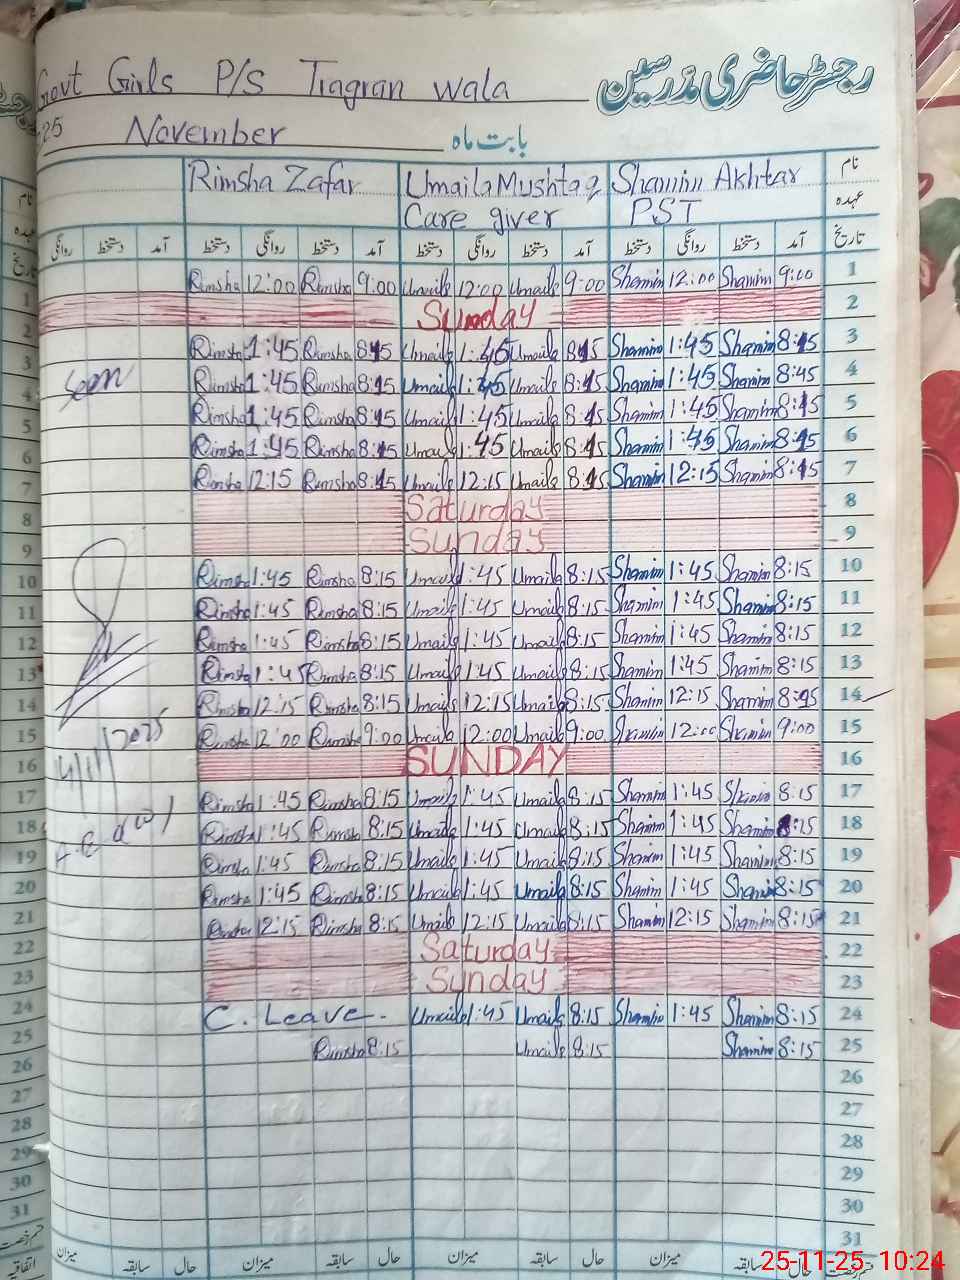 Govt Girls P/S Tragran wala رجسٹر حاضری مدرسین
-25 November بابت ماہ
Rimsha Zafar Umaila Mushtaq Shamim Akhtar نام
Care giver PST عہدہ
روانگی دستخط آمد دستخط روانگی دستخط آمد دستخط روانگی دستخط آمد دستخط روانگی دستخط آمد تاریخ
Rimsha 12:00 Rimsha 9:00 Umaila 12:00 Umaila 9:00 Shamim 12:00 Shamim 9:00 1
Sunday 2
Rimsha 1:45 Rimsha 8:15 Umaila 1:45 Umaila 8:15 Shamim 1:45 Shamim 8:15 3
Seen Rimsha 1:45 Rimsha 8:15 Umaila 1:45 Umaila 8:15 Shamim 1:45 Shamim 8:45 4
Rimsha 1:45 Rimsha 8:15 Umaila 1:45 Umaila 8:15 Shamim 1:45 Shamim 8:15 5
Rimsha 1:45 Rimsha 8:15 Umaila 1:45 Umaila 8:15 Shamim 1:45 Shamim 8:15 6
Rimsha 12:15 Rimsha 8:15 Umaila 12:15 Umaila 8:15 Shamim 12:15 Shamim 8:15 7
Saturday 8
Sunday 9
Rimsha 1:45 Rimsha 8:15 Umaila 1:45 Umaila 8:15 Shamim 1:45 Shamim 8:15 10
Rimsha 1:45 Rimsha 8:15 Umaila 1:45 Umaila 8:15 Shamim 1:45 Shamim 8:15 11
Rimsha 1:45 Rimsha 8:15 Umaila 1:45 Umaila 8:15 Shamim 1:45 Shamim 8:15 12
Rimsha 1:45 Rimsha 8:15 Umaila 1:45 Umaila 8:15 Shamim 1:45 Shamim 8:15 13
Rimsha 12:15 Rimsha 8:15 Umaila 12:15 Umaila 8:15 Shamim 12:15 Shamim 8:15 14
Rimsha 12:00 Rimsha 9:00 Umaila 12:00 Umaila 9:00 Shamim 12:00 Shamim 9:00 15
14/11/2025 SUNDAY 16
Rimsha 1:45 Rimsha 8:15 Umaila 1:45 Umaila 8:15 Shamim 1:45 Shamim 8:15 17
Rimsha 1:45 Rimsha 8:15 Umaila 1:45 Umaila 8:15 Shamim 1:45 Shamim 8:15 18
Rimsha 1:45 Rimsha 8:15 Umaila 1:45 Umaila 8:15 Shamim 1:45 Shamim 8:15 19
Rimsha 1:45 Rimsha 8:15 Umaila 1:45 Umaila 8:15 Shamim 1:45 Shamim 8:15 20
Rimsha 12:15 Rimsha 8:15 Umaila 12:15 Umaila 8:15 Shamim 12:15 Shamim 8:15 21
Saturday 22
Sunday 23
C. Leave. Umaila 1:45 Umaila 8:15 Shamim 1:45 Shamim 8:15 24
Rimsha 8:15 Umaila 8:15 Shamim 8:15 25
26
27
28
29
30
31
میزان سابقہ حال میزان سابقہ حال میزان سابقہ حال میزان سابقہ
25-11-25 10:24